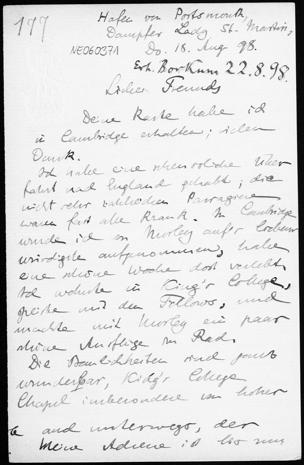 177
Hafen von Portsmouth,
Dampfer Lady St. Martin,
NE060371
Do. 18. Aug 98.
Erh. Borkum 22.8.98.
Lieber Freund,
Deine Karte habe ich
in Cambridge erhalten; schön
Dank.
Ich habe eine scheussliche Über
fahrt nach England gehabt; die
nicht sehr zahlreichen Passagiere
waren fast alle krank. In Cambridge
wurde ich von Morley aufs
würdigste aufgenommen, habe
eine schöne Woche dort verlebt.
Ich wohnte in King's College,
speiste mit den Fellows, und
machte mit Morley ein paar
schöne Ausflüge im Rad.
Die Baulichkeiten sind ganz
wunderbar, King's College
Chapel insbesondere von hoher
und unterwegs, der
Meine Adresse ist bis zum